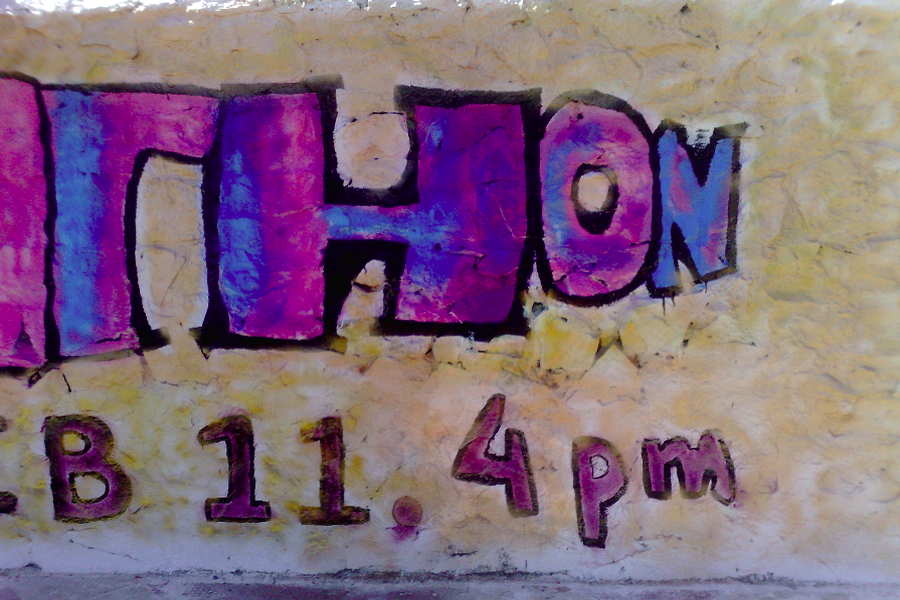 THON
EB 11. 4pm